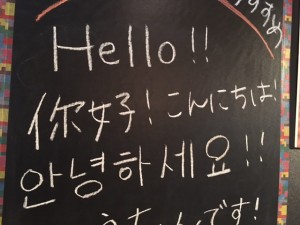 すすめ
Hello!!
你好!こんにちは!
안녕하세요!!
うちゃんです!